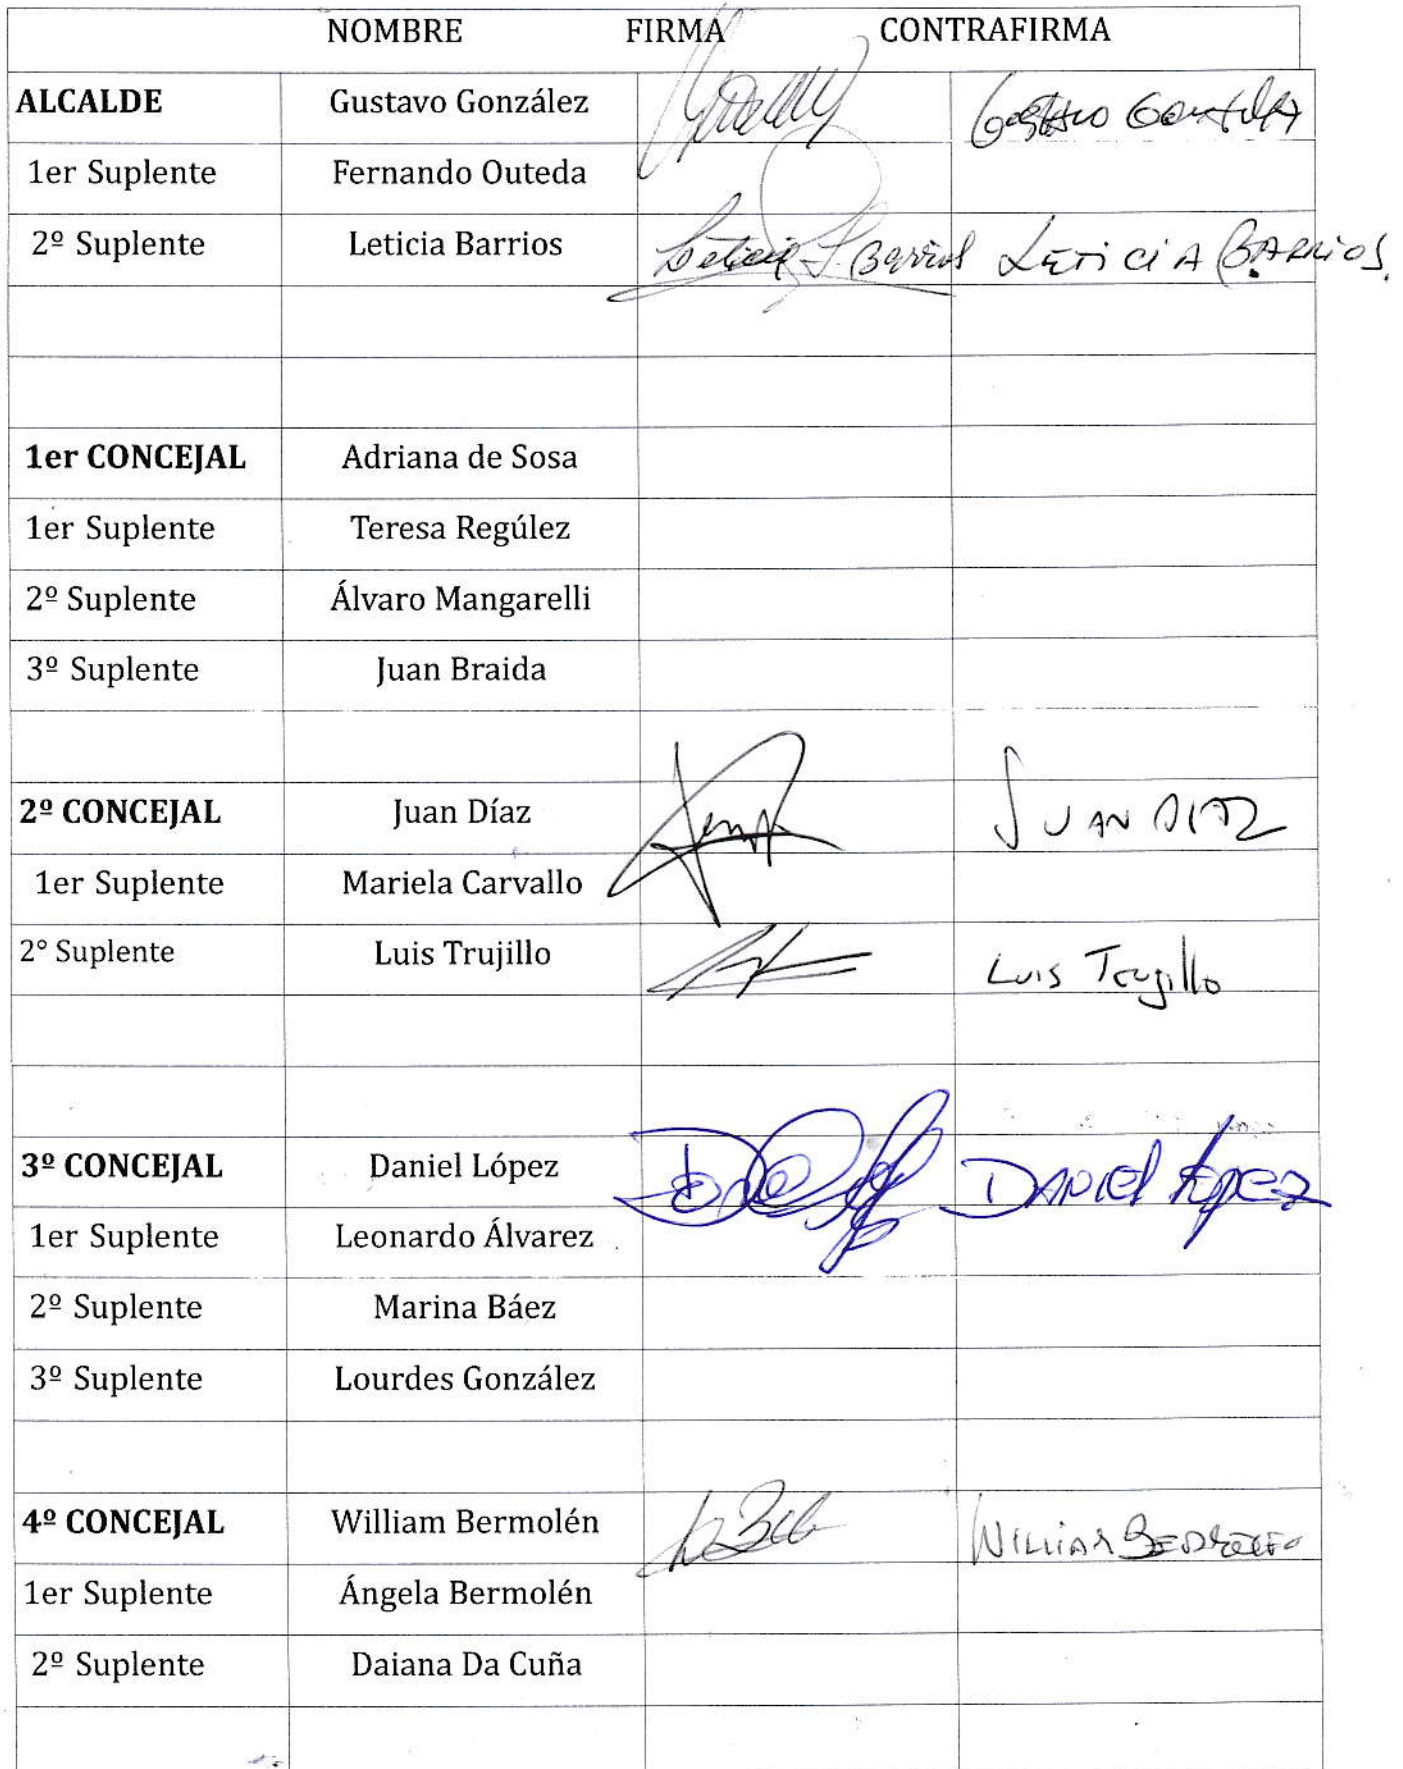 NOMBRE FIRMA CONTRAFIRMA
ALCALDE Gustavo González Gustavo González
1er Suplente Fernando Outeda
2º Suplente Leticia Barrios Leticia Barrios LETiCiA BARRiOS.
1er CONCEJAL Adriana de Sosa
1er Suplente Teresa Regúlez
2º Suplente Álvaro Mangarelli
3º Suplente Juan Braida
2º CONCEJAL Juan Díaz JUAN DIAZ
1er Suplente Mariela Carvallo
2° Suplente Luis Trujillo Luis Trujillo
3º CONCEJAL Daniel López DANIEl López
1er Suplente Leonardo Álvarez
2º Suplente Marina Báez
3º Suplente Lourdes González
4º CONCEJAL William Bermolén WILLIAM
1er Suplente Ángela Bermolén
2º Suplente Daiana Da Cuña